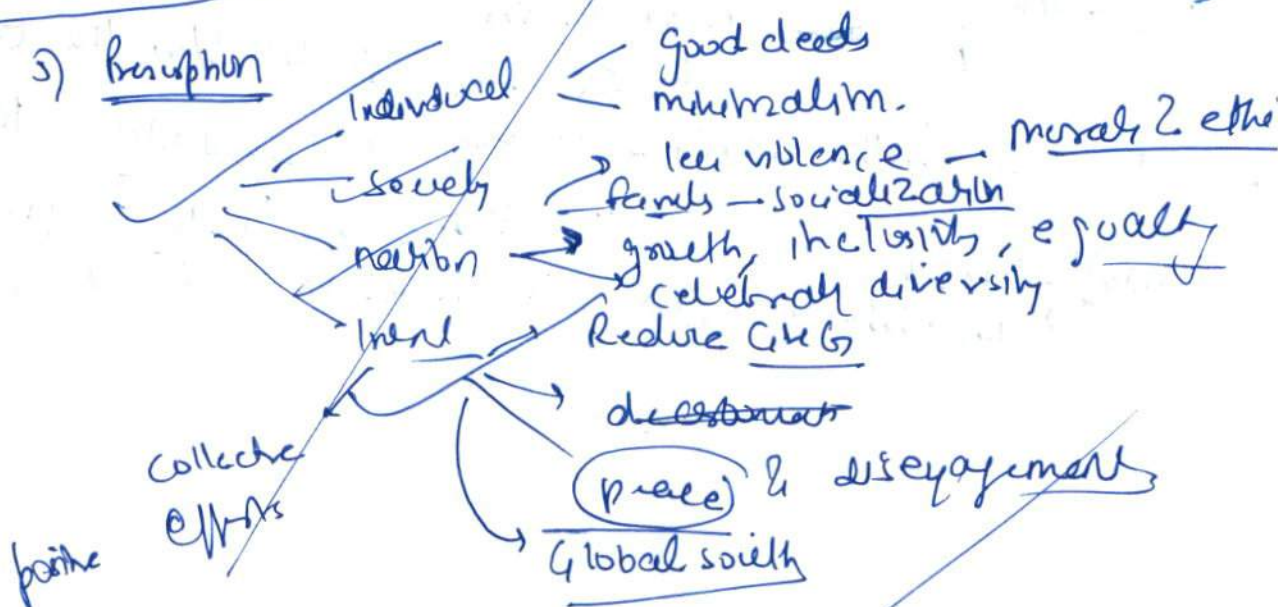 3) Prescription
Individual
good deeds
minimalism.
society
less violence — morals & ethi
family — socialization
nation
growth, inclusivity, equality
celebrate diversity
Intnl
Reduce GHG
peace & disengagement
Global south
collective
efforts
positive